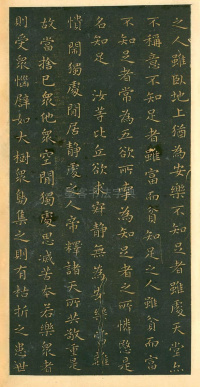 之人雖臥地上猶為安樂不知足者雖處天堂亦
不稱意不知足者雖富而貧知足之人雖貧而富
不知足者常為五欲所牽為知足者之所憐愍是
名知足　汝等比丘欲求寂靜無為安樂當離
憒閙獨處閒居靜處之人帝釋諸天所共敬重是
故當捨己眾他眾空閒獨處思滅苦本若樂眾者
則受眾惱譬如大樹眾鳥集之則有枯折之患世